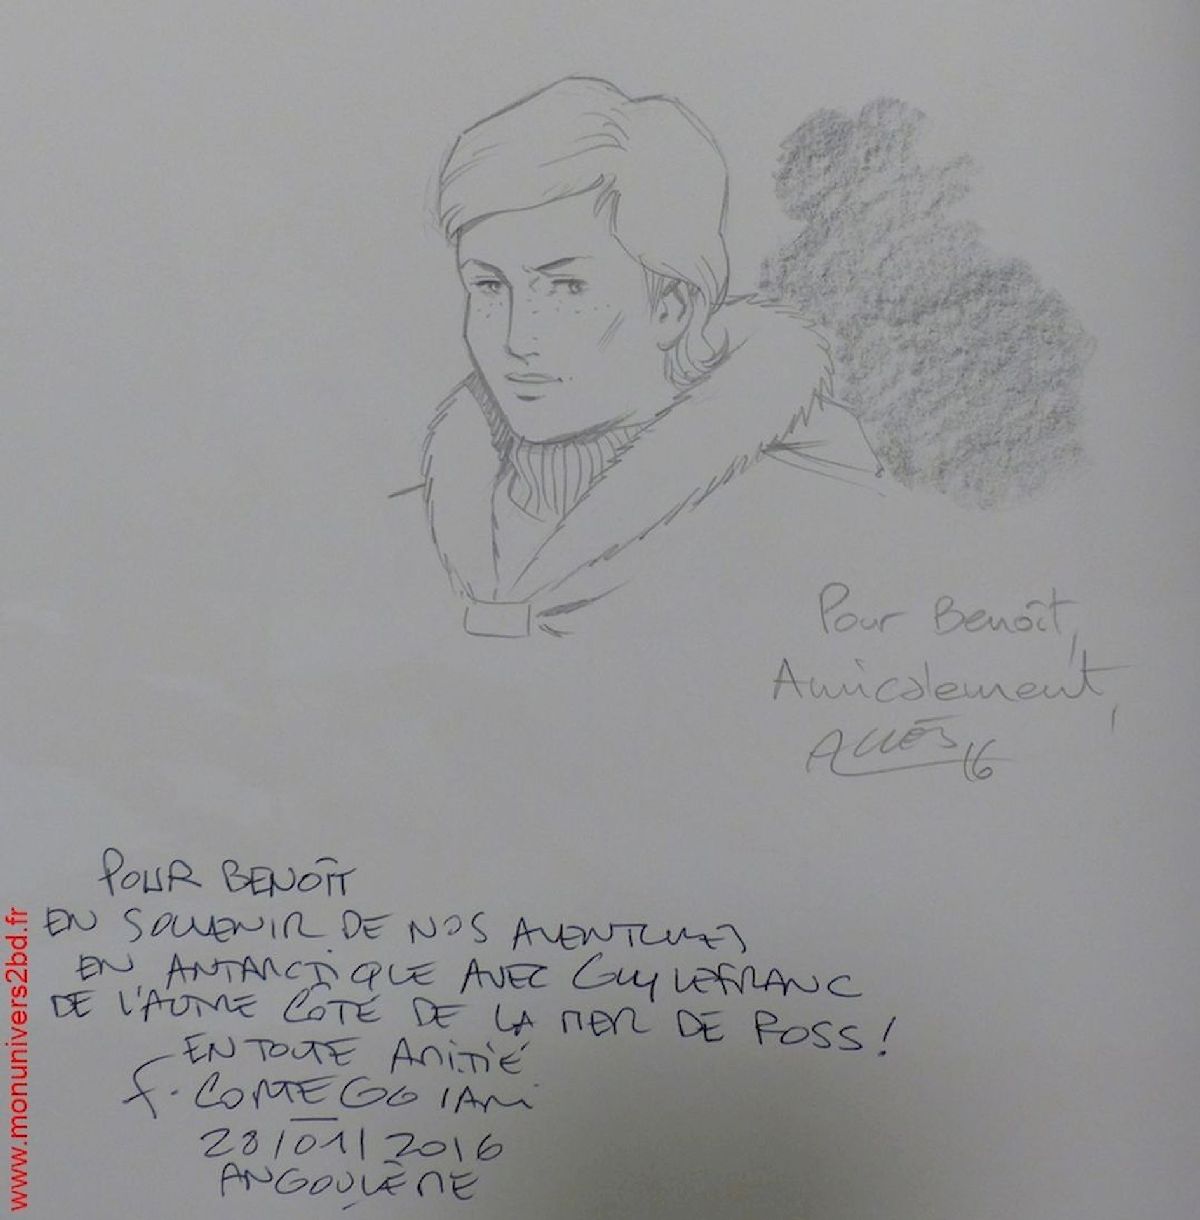 Pour Benoît,
Amicalement,
ALLÈS 16
POUR BENOÎT
EN SOUVENIR DE NOS AVENTURES
EN ANTARCTIQUE AVEC GUY LEFRANC
DE L'AUTRE CÔTÉ DE LA MER DE ROSS !
EN TOUTE AMITIÉ
F. CORTEGGIANI
28/01/2016
ANGOULÈME
www.monunivers2bd.fr